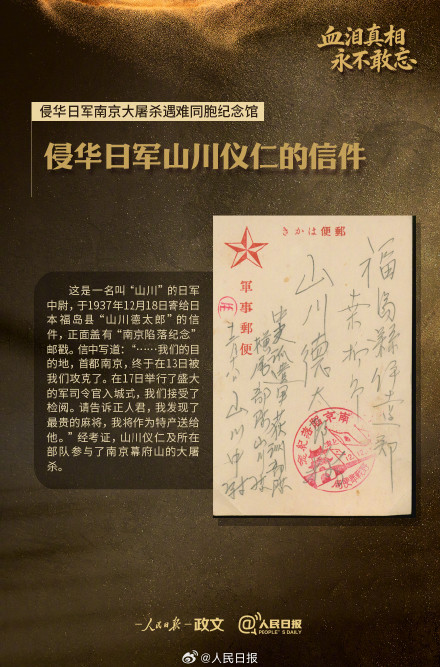 血泪真相
永不敢忘
侵华日军南京大屠杀遇难同胞纪念馆
侵华日军山川仪仁的信件
这是一名叫“山川”的日军
中尉，于1937年12月18日寄给日
本福岛县“山川德太郎”的信
件，正面盖有“南京陷落纪念”
邮戳。信中写道：“……我们的目
的地，首都南京，终于在13日被
我们攻克了。在17日举行了盛大
的军司令官入城式，我们接受了
检阅。请告诉正人君，我发现了
最贵的麻将，我将作为特产送给
他。”经考证，山川仪仁及所在
部队参与了南京幕府山的大屠
杀。
きかは便郵
福島縣伊達郡
山川德太
軍事郵便
山川中尉
人民日报
政文
@人民日报
PEOPLE'S DAILY
@人民日报